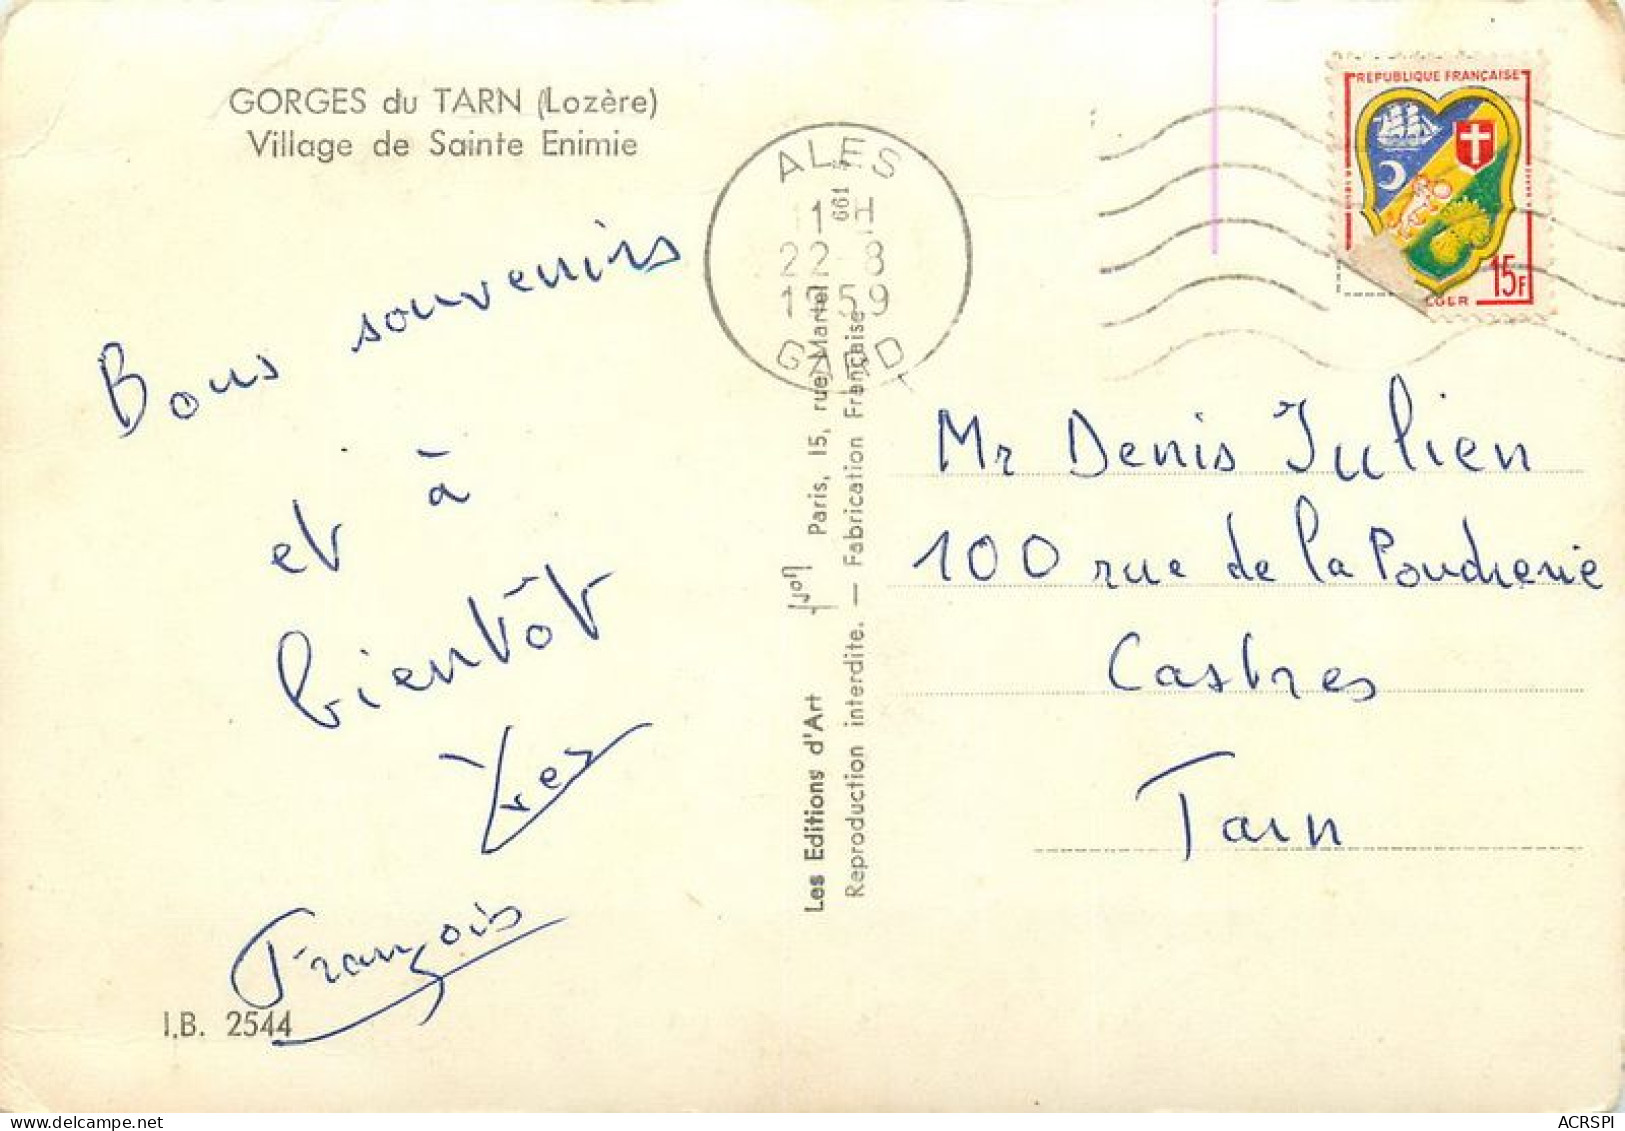 GORGES du TARN (Lozère)
Village de Sainte Enimie
Bons souvenirs
et à
bientôt
Yves
François
I.B. 2544
ALES
22-8
1959
GARD
Les Editions d'Art Paris, 15, rue Martel
Reproduction interdite. — Fabrication Française
661
REPUBLIQUE FRANÇAISE
15F
Mr Denis Julien
100 rue de la Poudrerie
Castres
Tarn
ACRSPI